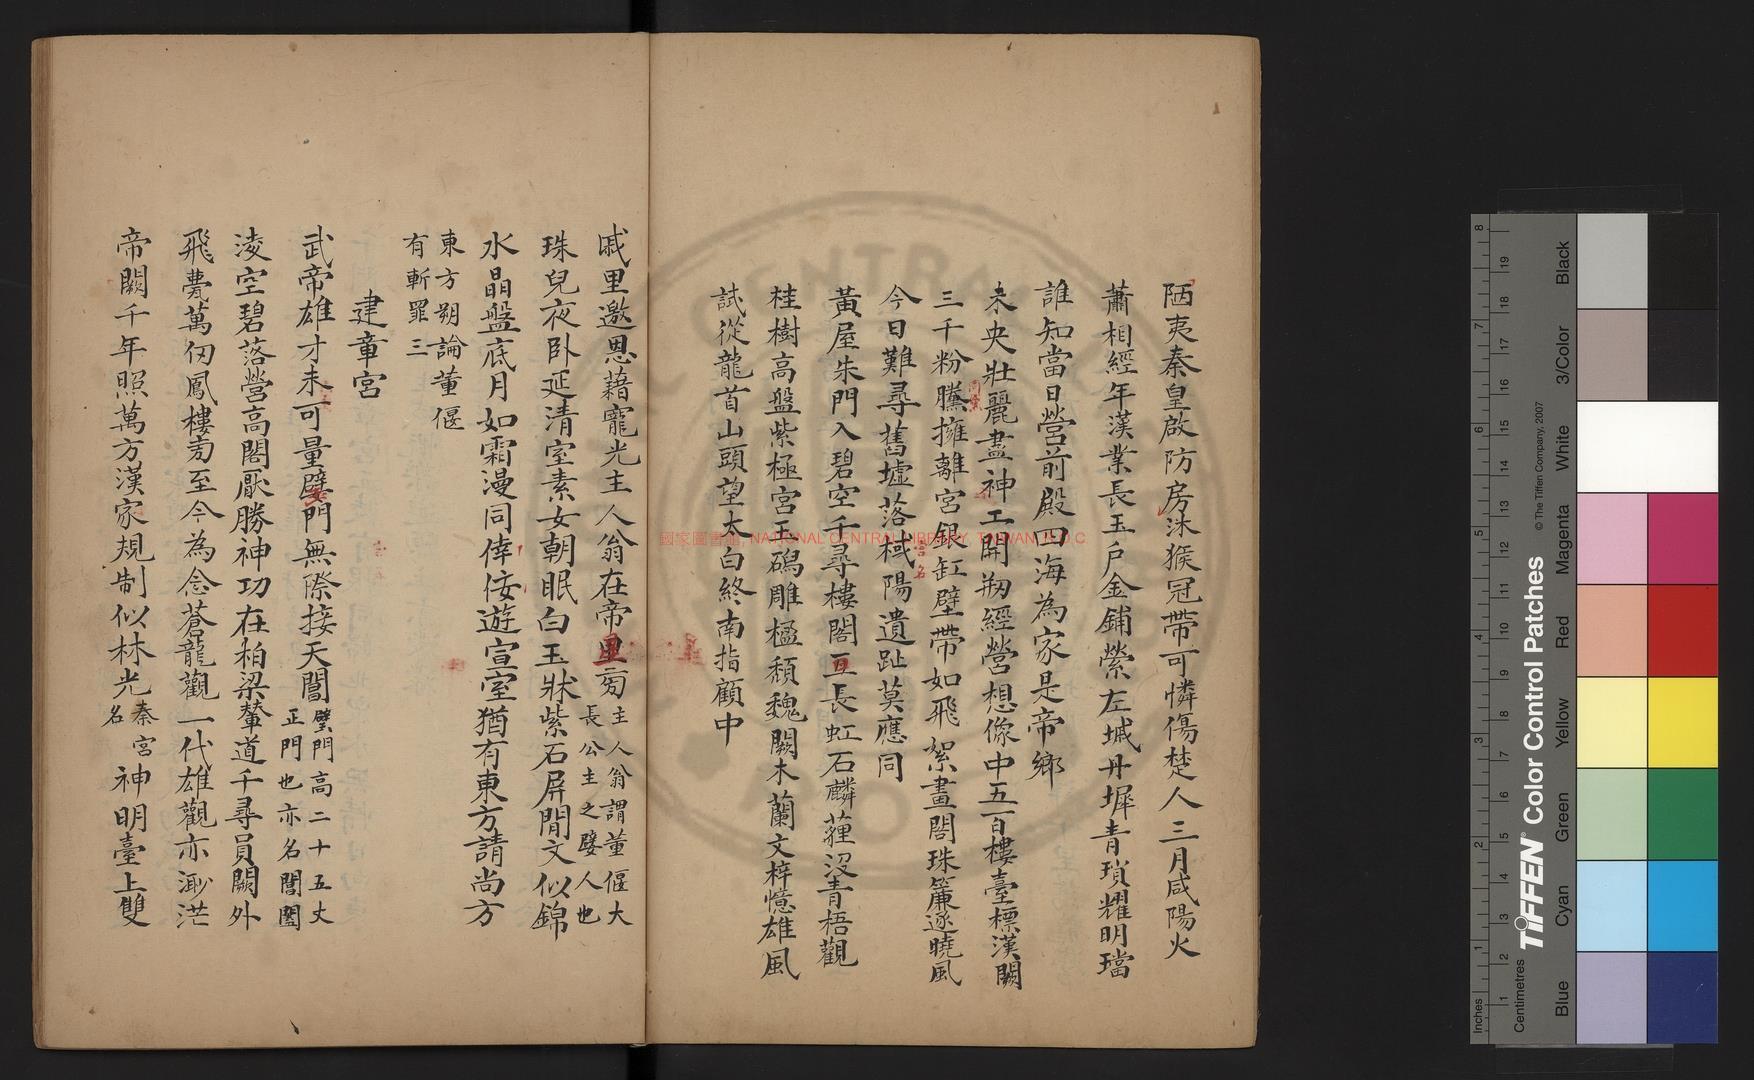 陋夷秦皇啟防房沐猴冠帶可憐傷楚人三月咸陽火
蕭相經年漢業長玉戶金鋪縈左墄丹墀青瑣耀明璫
誰知當日營前殿四海為家是帝鄉
未央壯麗盡神工開剏經營想像中五百樓臺標漢闕
三千粉黛擁離宮銀缸壁帶如飛絮畫閣珠簾逐曉風
今日難尋舊墟落棫陽遺趾莫應同
黃屋朱門入碧空千尋樓閣亘長虹石麟薶沒青梧觀
桂樹高盤紫極宮玉磶雕楹頹魏闕木蘭文梓憶雄風
試從龍首山頭望太白終南指顧中
戚里邀恩藉寵光主人翁在帝里旁
主人翁謂董偃大
長公主之嬖人也
珠兒夜卧延清室素女朝眠白玉牀紫石屏閒文似錦
水晶盤底月如霜漫同倖佞遊宣室猶有東方請尚方
東方朔論董偃
有斬罪三
建章宮
武帝雄才未可量壁門無際接天閶
璧門高二十五丈
正門也亦名閶闔
淩空碧落營高閣厭勝神功在柏梁輦道千尋員闕外
飛甍萬仞鳳樓旁至今為念蒼龍觀一代雄觀亦渺茫
帝闕千年照萬方漢家規制似林光
秦宮
名
神明臺上雙
國家圖書館, NATIONAL CENTRAL LIBRARY, TAIWAN, R.O.C
Inches
Centimetres
TIFFEN® Color Control Patches
© The Tiffen Company, 2007
Blue
Cyan
Green
Yellow
Red
Magenta
White
3/Color
Black